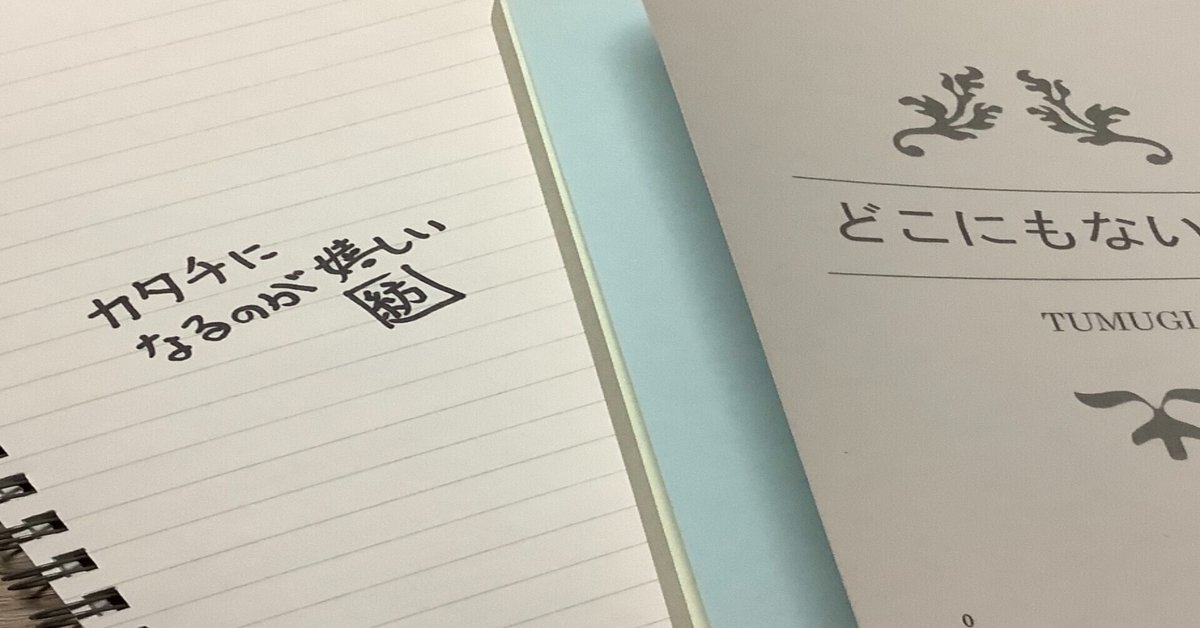 カタチに
なるのが嬉しい
紡
どこにもない
TUMUGI
0